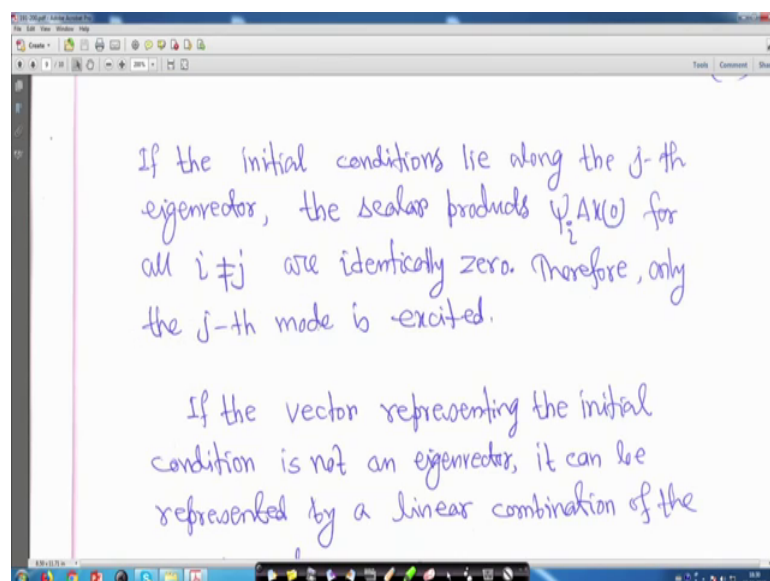 File Edit View Window Help
Create
Tools Comment
If the initial conditions lie along the j-th
eigenvector, the scalar products ψi Δx(0) for
all i ≠ j are identically zero. Therefore, only
the j-th mode is excited.
If the vector representing the initial
condition is not an eigenvector, it can be
represented by a linear combination of the